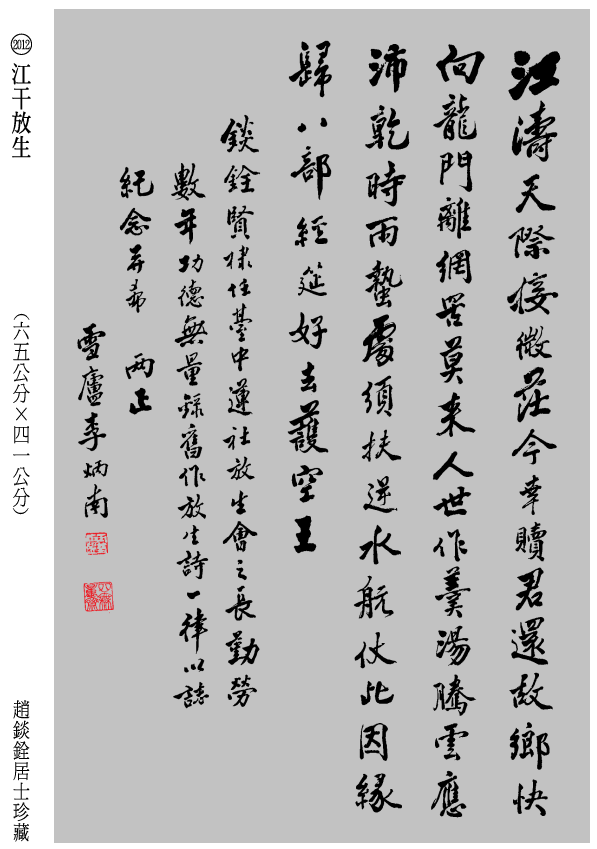 江濤天際接微茫今幸贖君還故鄉快
向龍門離網罟莫來人世作羹湯騰雲應
沛乾時雨蟄處須扶逆水航仗此因緣
歸八部經筵好去護空王
錟銓賢棣任臺中蓮社放生會之長勤勞
數年功德無量錄舊作放生詩一律以誌
紀念并希 兩正
雪廬李炳南
2012 江干放生
（六五公分×四一公分）
趙錟銓居士珍藏